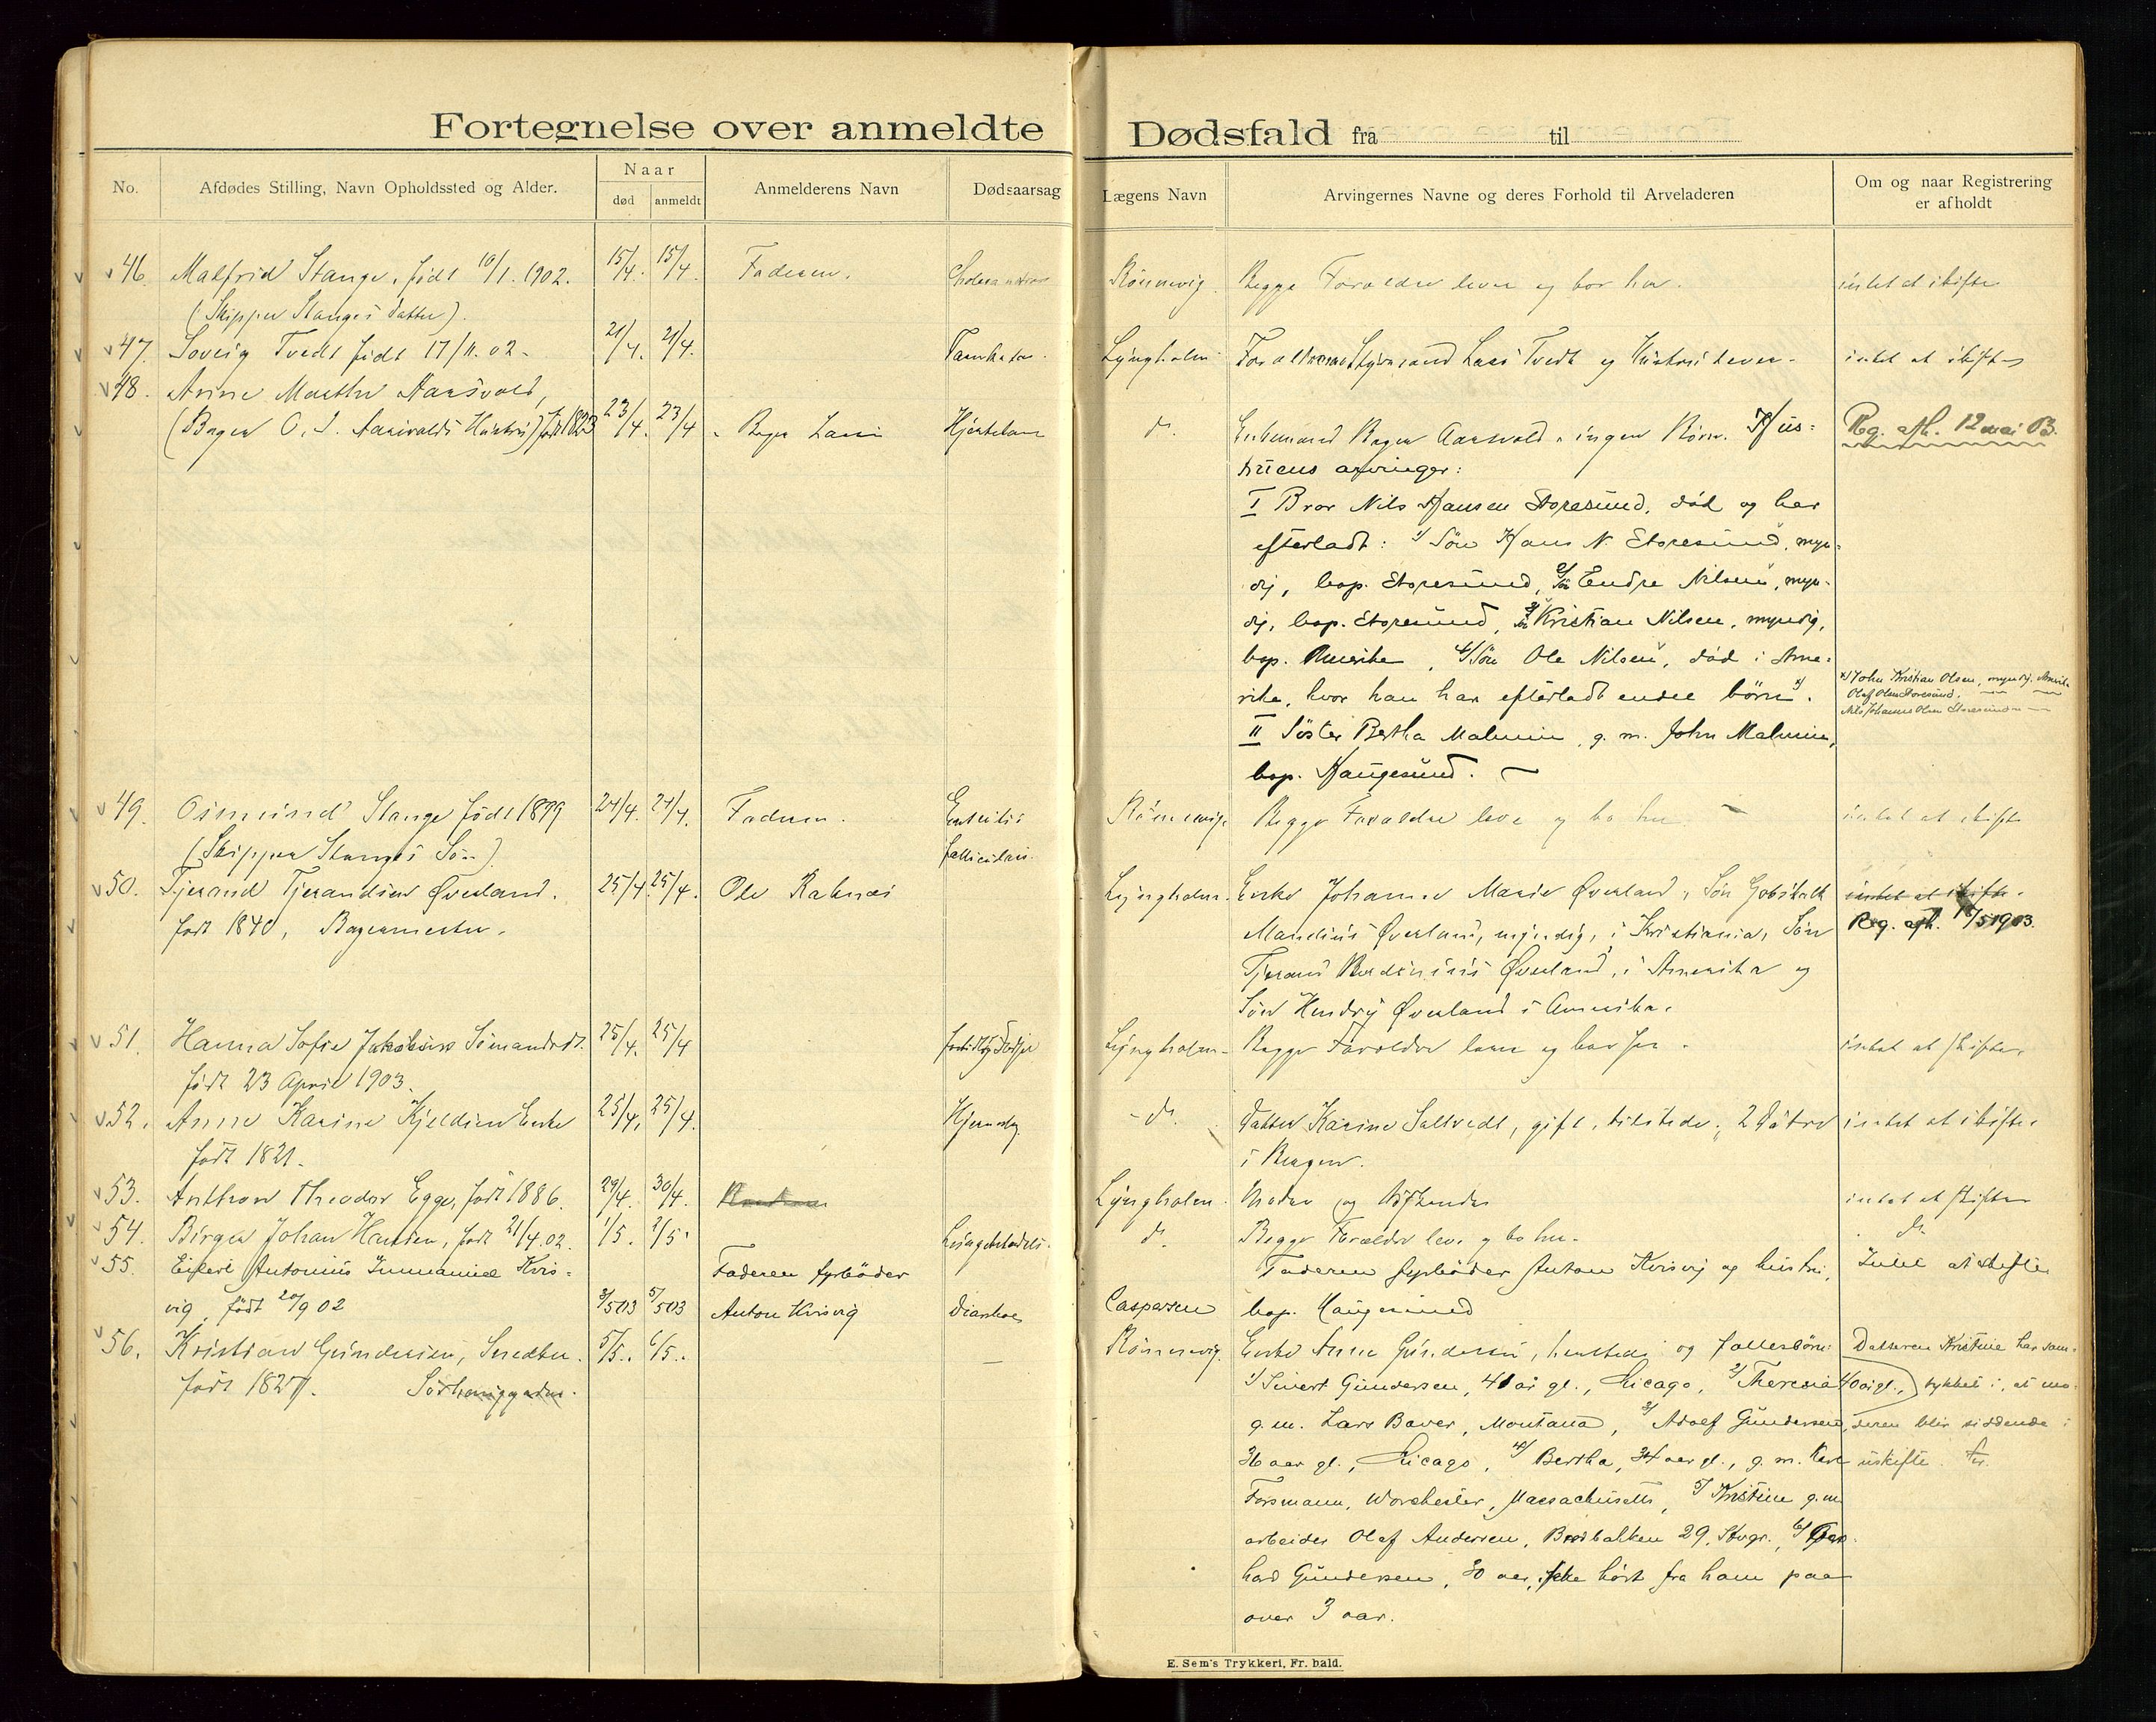 Fortegnelse over anmeldte Dødsfald fra til
No.
Afdødes Stilling, Navn Opholdssted og Alder.
Naar
død
anmeldt
Anmelderens Navn
Dødsaarsag
Lægens Navn
Arvingernes Navne og deres Forhold til Arveladeren
Om og naar Registrering
er afholdt
46. Malfrid Stange, født 10/1. 1902. 15/4. 15/4. Faderen. Rönnevig. Begge Forældre lever og bor her. intet at skifte
(Skipper Stanges datter).
47. Soveig Tvedt født 17/11. 02. 21/4. 21/4. Lyngholm Styrmand Lars Tvedt og Hustru lever. intet at skifte
48. Anne Marthe Aarsvold,
(Bager O. J. Aarsvolds Hustru) født 1823 23/4. 23/4 Bager do. Enkemand Bager Aarsvold, ingen Börn. Hus= Reg. afh. 12 mai 03.
truens arvinger:
I Bror Nils Hansen Storesund, död og har
efterladt: 1/ Sön Hans N. Storesund, myn=
dig, bop. Storesund, 2/ Sön Endre Nilsen, myn-
dig, bop. Storesund, 3/ Sön Kristian Nilsen, myndig,
bop. Amerika, 4/ Sön Ole Nilsen, död i Ame=
rika, hvor han har efterladt endel börn x).
x) John Kristian Olsen, myndig, Amerika
Olaf Olsen Storesund.
Nils Johannes Olsen Storesund
II Söster Bertha Malmin, g. m. John Malmin,
bop. Haugesund.
49. Osmund Stange født 1899 24/4. 24/4. Faderen. Enteritis Rönnevig Begge Forældre leve og bo her intet at skifte
(Skipper Stanges Sön) follicularis.
50. Tjerand Tjerandsen Øverland. 25/4 25/4. Ole Raknes Lyngholm. Enke Johanne Marie Øverland, Sön Gotskalk intet at skifte.
født 1840, Bagermester. Mandius Øverland, myndig, i Kristiania, Sön Reg. afh. 18/5 1903.
Tjerand Øverland, i Amerika og
Sön Hendrij Øverland i Amerika.
51. Hanna Sofie Jakobsen Sömandsdt. 25/4. 25/4 Lyngholm Begge Forældre lever og bor her. intet at skifte.
født 23 April 1903.
52. Anne Karine Kjeldsen Enke 25/4. 25/4. do. datter Karine Saltvedt, gift, tilstede, 2 Døtre intet at skifte
født 1821. i Bergen.
53. Anthon Theodor Egge, født 1886. 29/4. 30/4. Lyngholm. Moder og Søskende intet at skifte
54. Birger Johan Hansen, født 21/4. 02. 1/5. 2/5. do. Begge Forældre leve og bo her. do.
55. Eilert Antonius Immanuel Kvis= Faderen fyrböder Faderen fyrböder Anton Kvisvig og hustru, Intet at skifte
vig, född 20/9 02 3/5 03 5/5 03 Anton Kvisvig Diarrhoe Caspersen bop. Haugesund
56. Kristian Gundersen, Snedker. 5/5. 6/5. Rönnevig. Enke Anne Gundersen, herstede og fællesbörn: Datteren Kristine har sam=
født 1827. Sörhauggaden. 1/ Sivert Gundersen, 41 år gl., Chicago, 2/ Theresia 40 år gl., tykket i, at mo=
g. m. Lars Baver, Montana, 3/ Adolf Gundersen, deren blir siddende i
36 aar gl., Chicago, 4/ Bertha, 34 aar gl., g. m. Karl uskifte.
Forsmann, Worchester, Massachusetts, 5/ Kristine g. m.
arbeider Olaf Andersen, Brodbakken 29, Stvgr., 6/ Ger=
hard Gundersen, 30 aar, ikke hört fra ham paa
over 3 aar.
E. Sem's Trykkeri, Fr. hald.